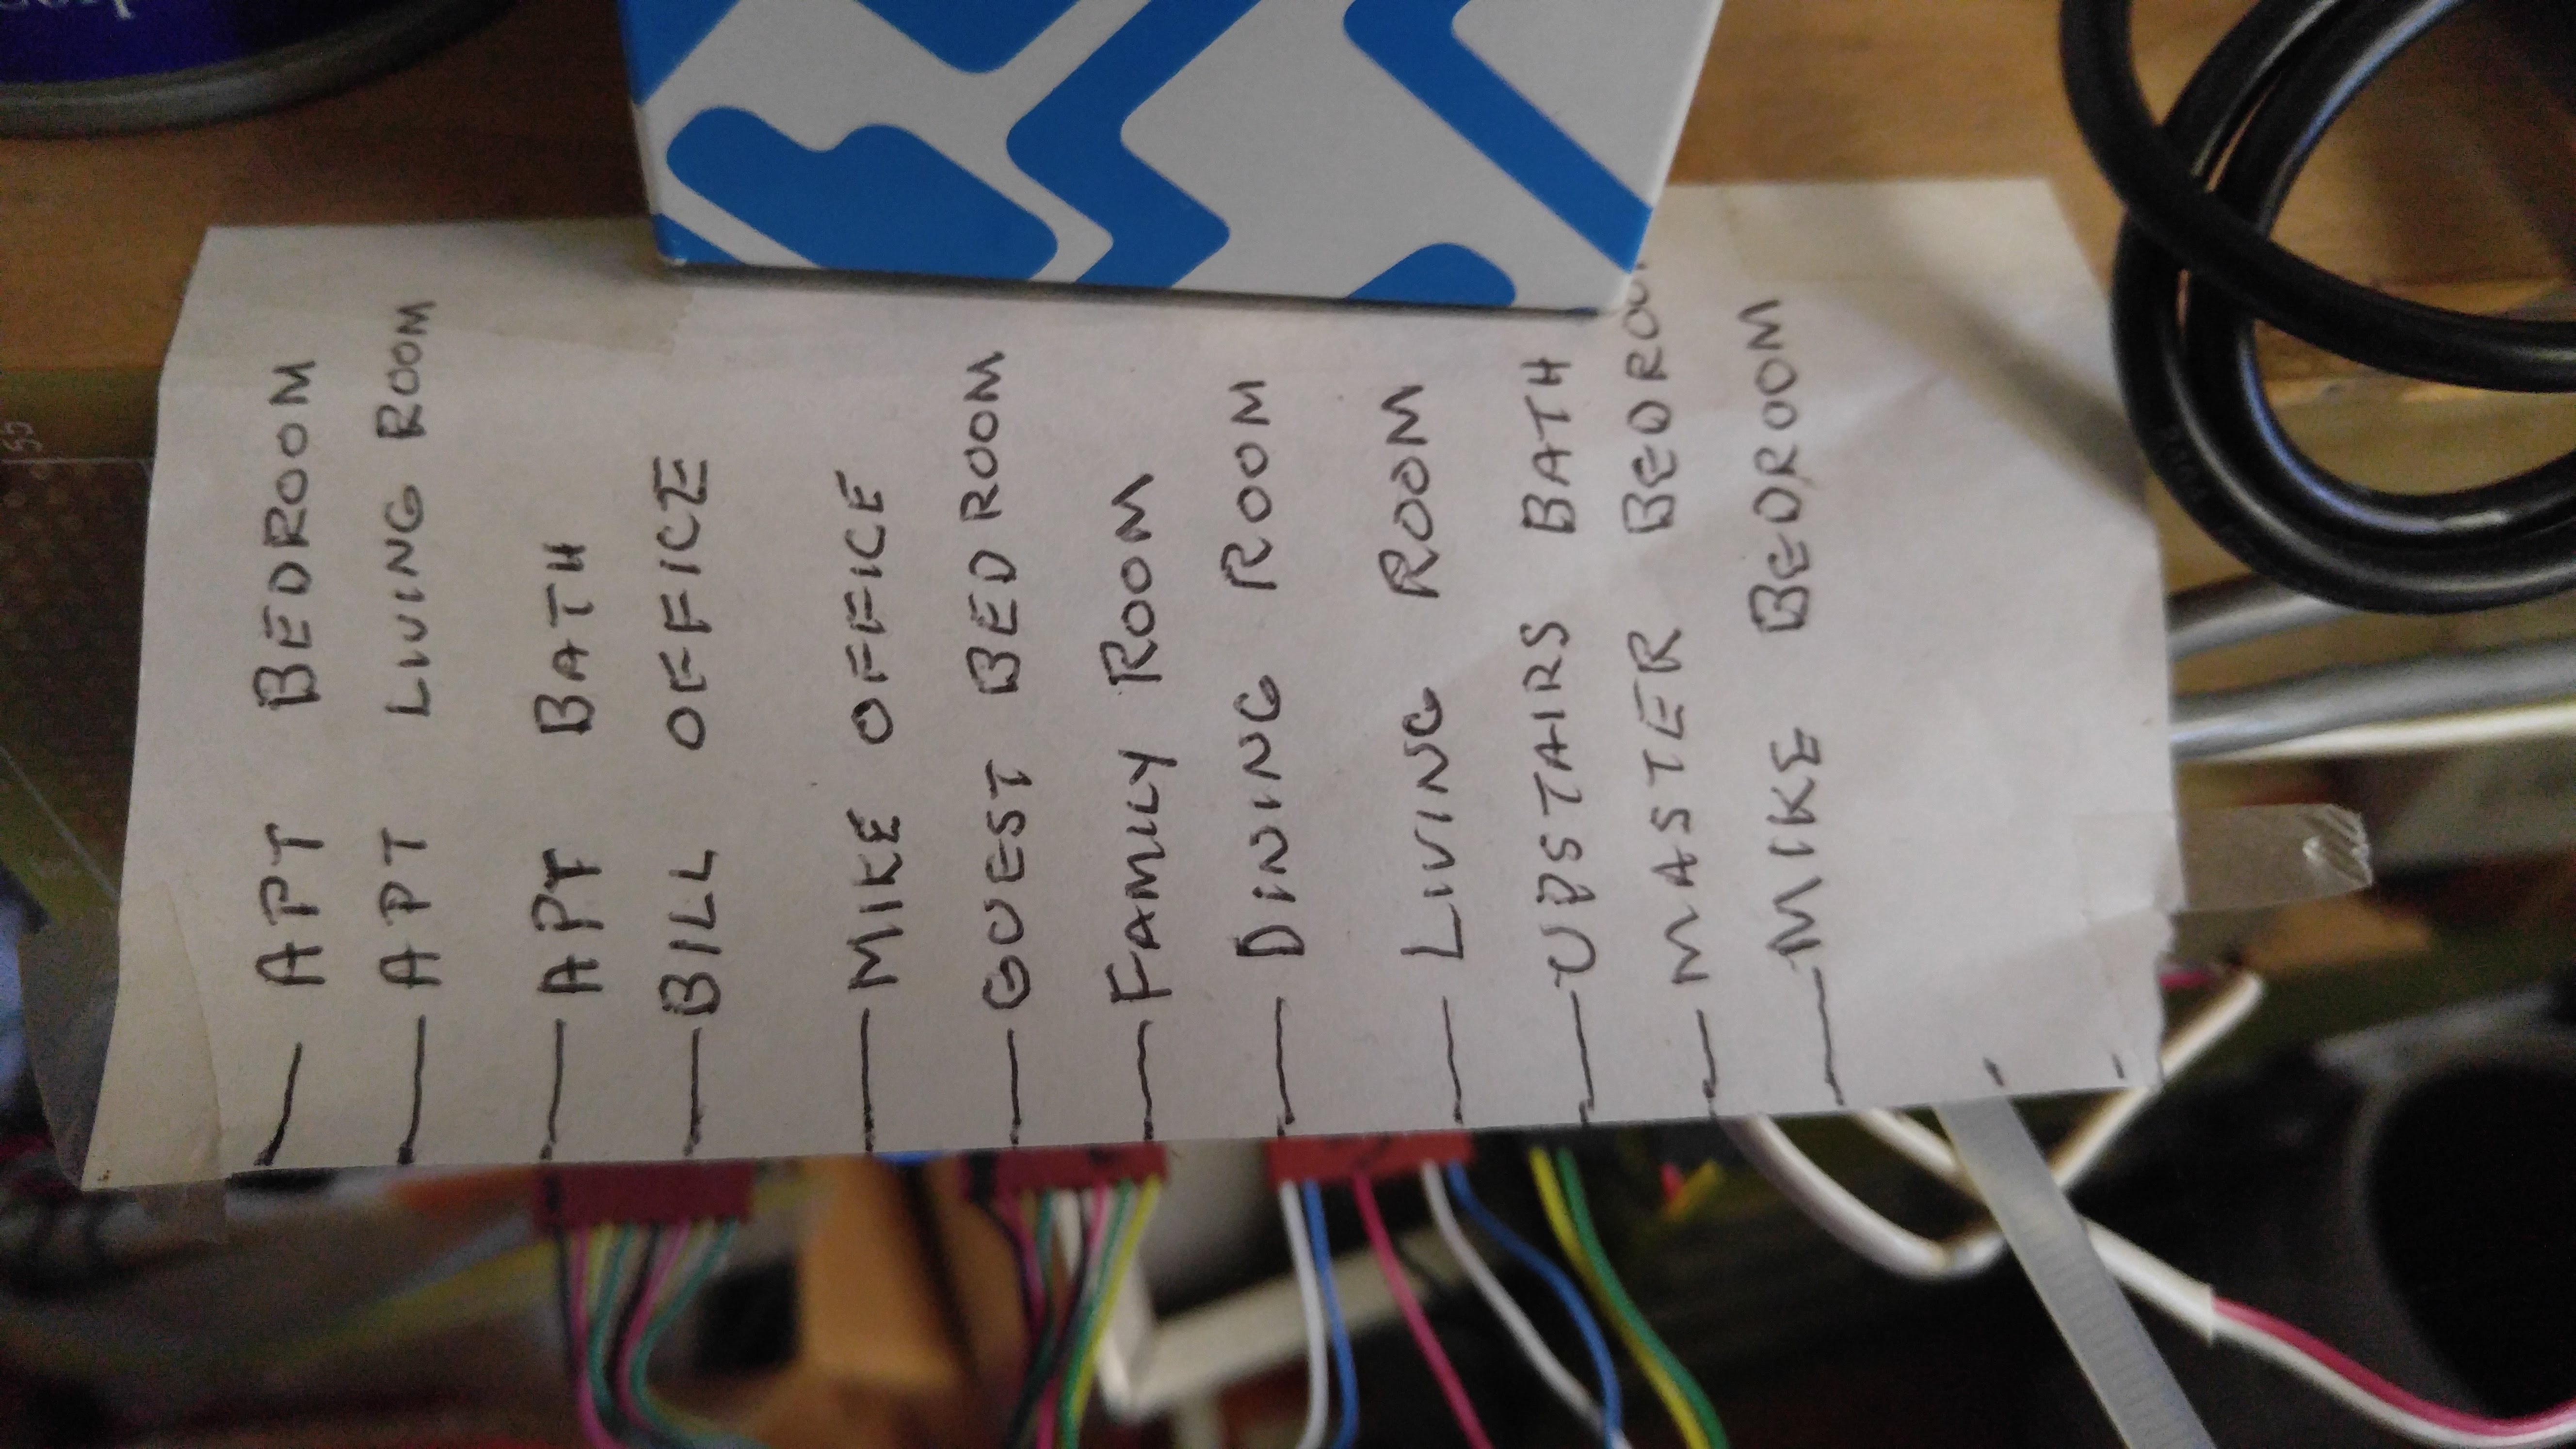 APT BEDROOM
APT LIVING ROOM
APT BATH
BILL OFFICE
MIKE OFFICE
GUEST BEDROOM
FAMILY ROOM
DINING ROOM
LIVING ROOM
UPSTAIRS BATH
MASTER BEDROOM
MIKE BEDROOM